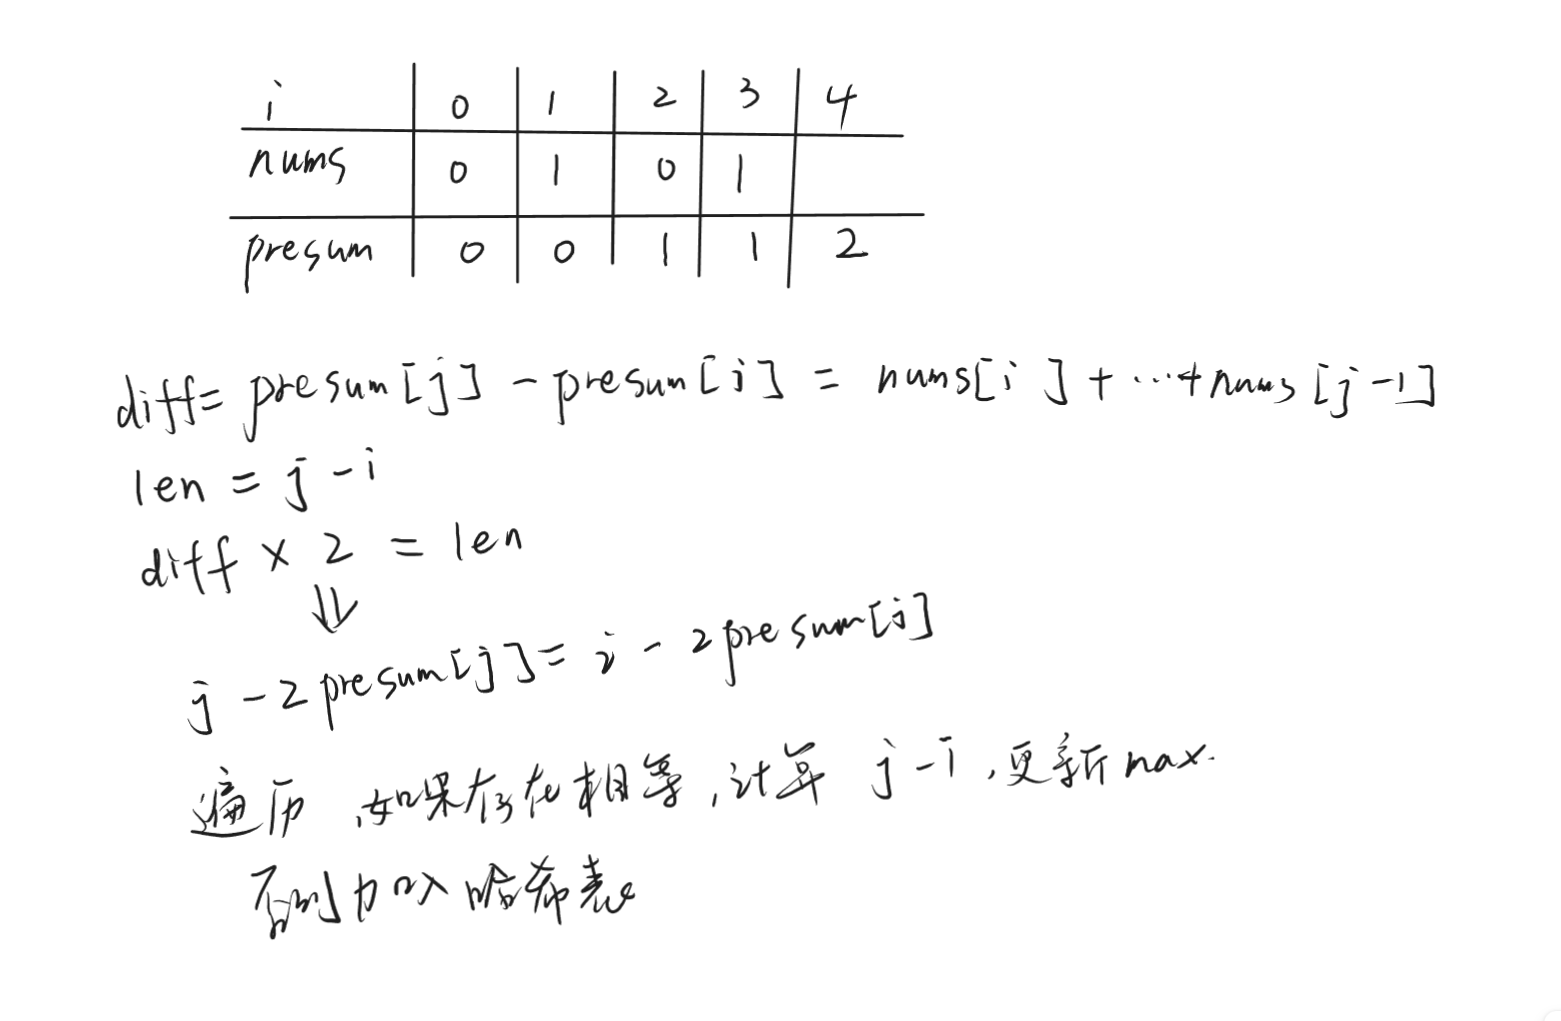 i 0 1 2 3 4
nums 0 1 0 1
presum 0 0 1 1 2
diff= presum[j] - presum[i] = nums[i] + ...+ nums[j-1]
len = j - i
diff × 2 = len
⇓
j - 2presum[j] = i - 2presum[i]
遍历,如果存在相等,计算 j-i,更新max.
否则加入哈希表